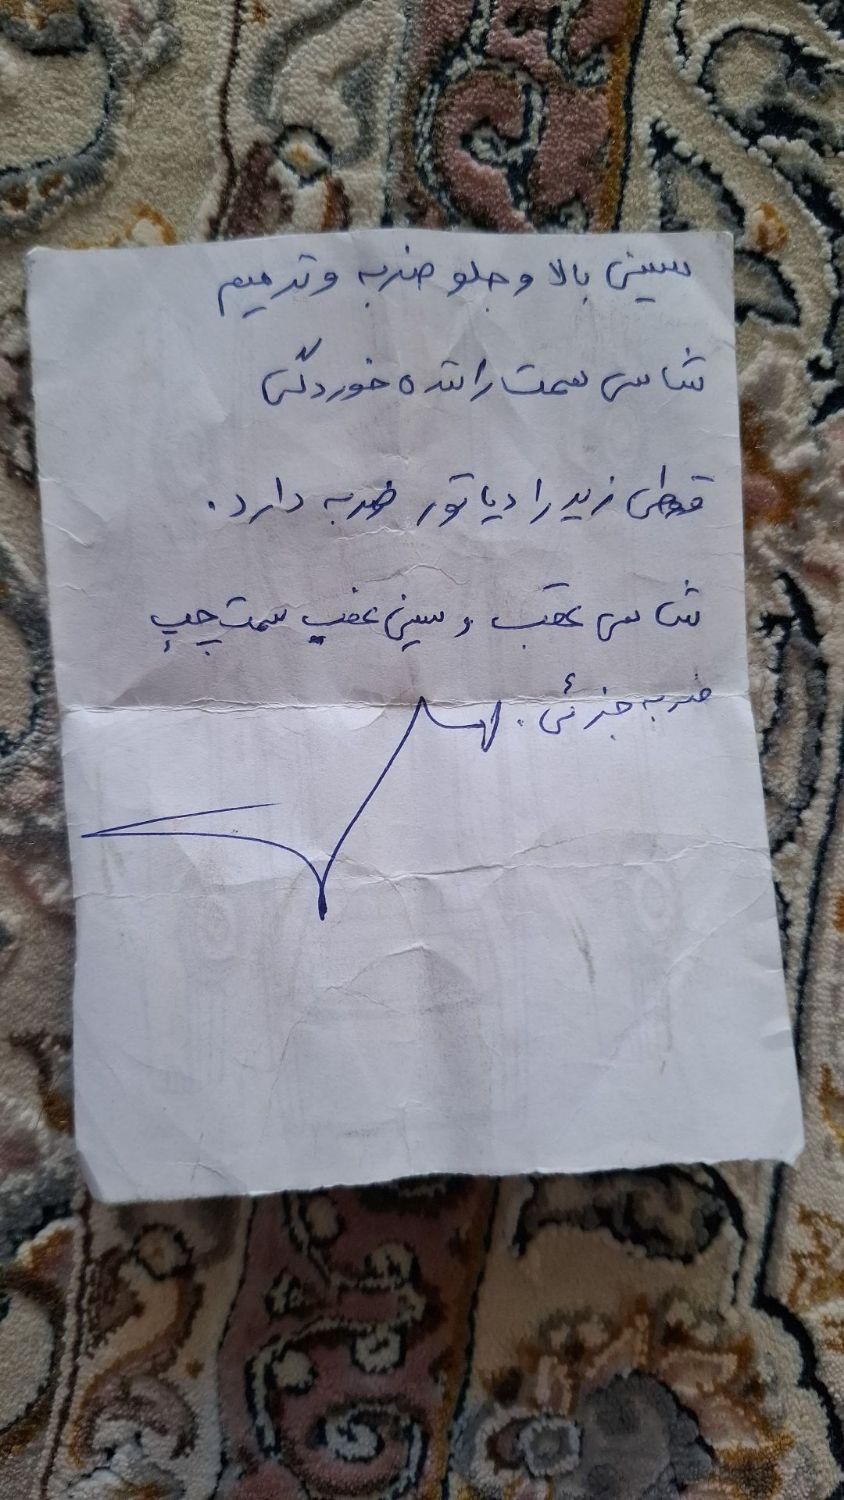 سینی بالا و جلو ضربه و ترمیم
شاسی سمت راننده خوردگی
قوطی زیر رادیاتور ضربه دارد.
شاسی عقب و سینی عقب سمت چپ
ضربه جزئی.